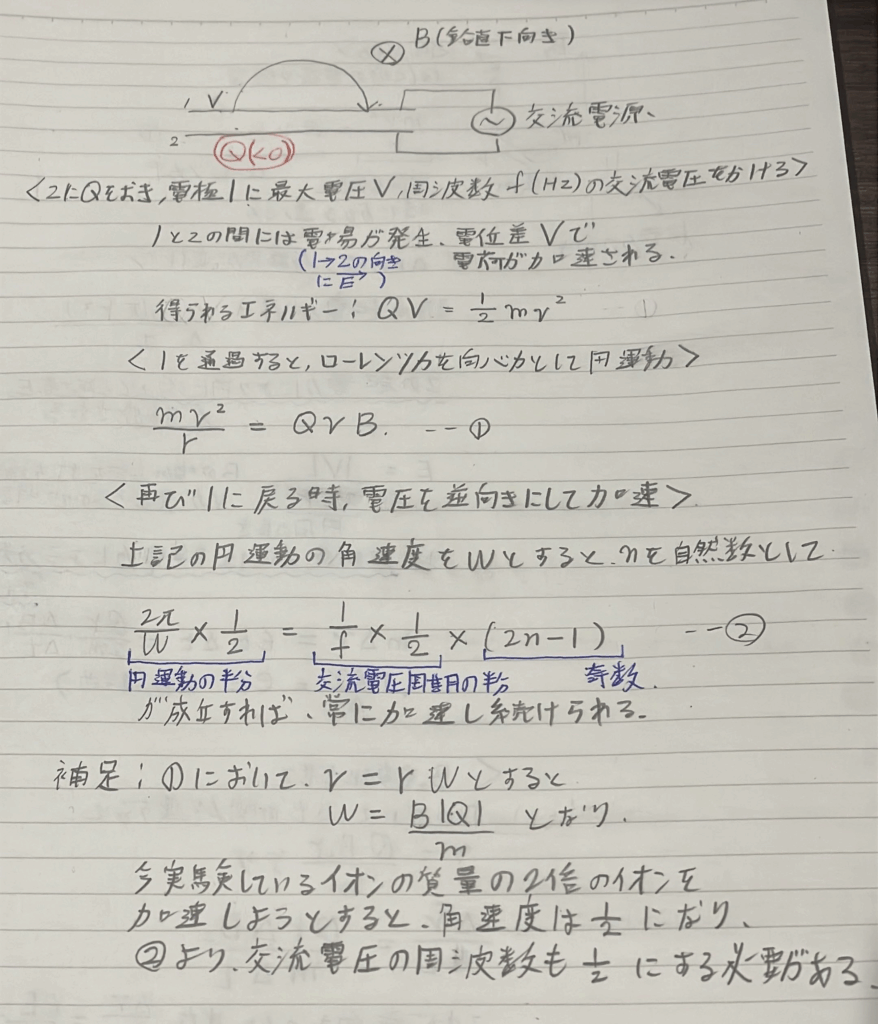 B(鉛直下向き)
1 V
交流電源、
2
Q(<0)
<2にQをおき,電極1に最大電圧V,周波数f(Hz)の交流電圧をかける>
1と2の間には電場が発生、電位差Vで
(1→2の向き 電荷が加速される.
にE)
得られるエネルギー: QV = 1/2 mv² --- ①
<1を通過すると,ローレンツ力を向心力として円運動>
mv²/r = QvB. --- ①
<再び1に戻る時,電圧を逆向きにして加速>
上記の円運動の角速度をWとすると、nを自然数として
2π/W × 1/2 = 1/f × 1/2 × (2n-1) --- ②
円運動の半分 交流電圧周期の半分 奇数.
が成立すれば、常に加速し続けられる。
補足; ①において、v = rWとすると
W = B|Q|/m となり、
今実験しているイオンの質量の2倍のイオンを
加速しようとすると、角速度は1/2になり、
②より、交流電圧の周波数も1/2にする必要がある.